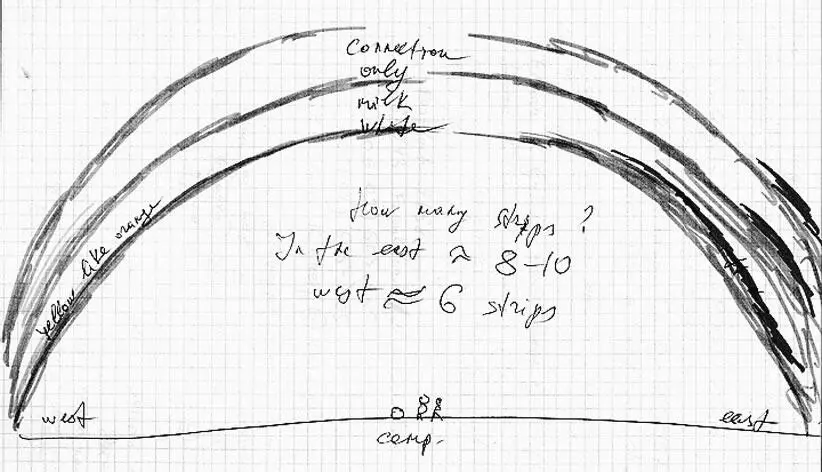 Connection
only
milk
white
yellow like orange
How many strips ?
In the east ≈ 8-10
west ≈ 6 strips
west
east
camp.